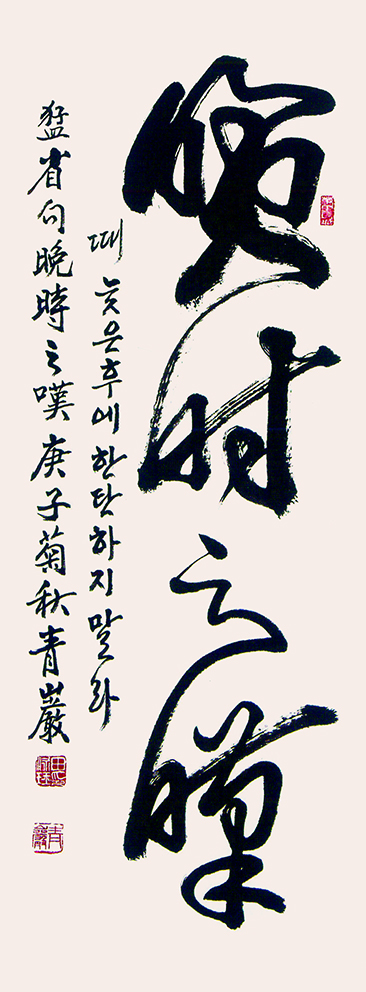 晩时之嘆
때 늦은 후에 한탄하지 말라
猛省向晩時之嘆 庚子菊秋青巖
青巖